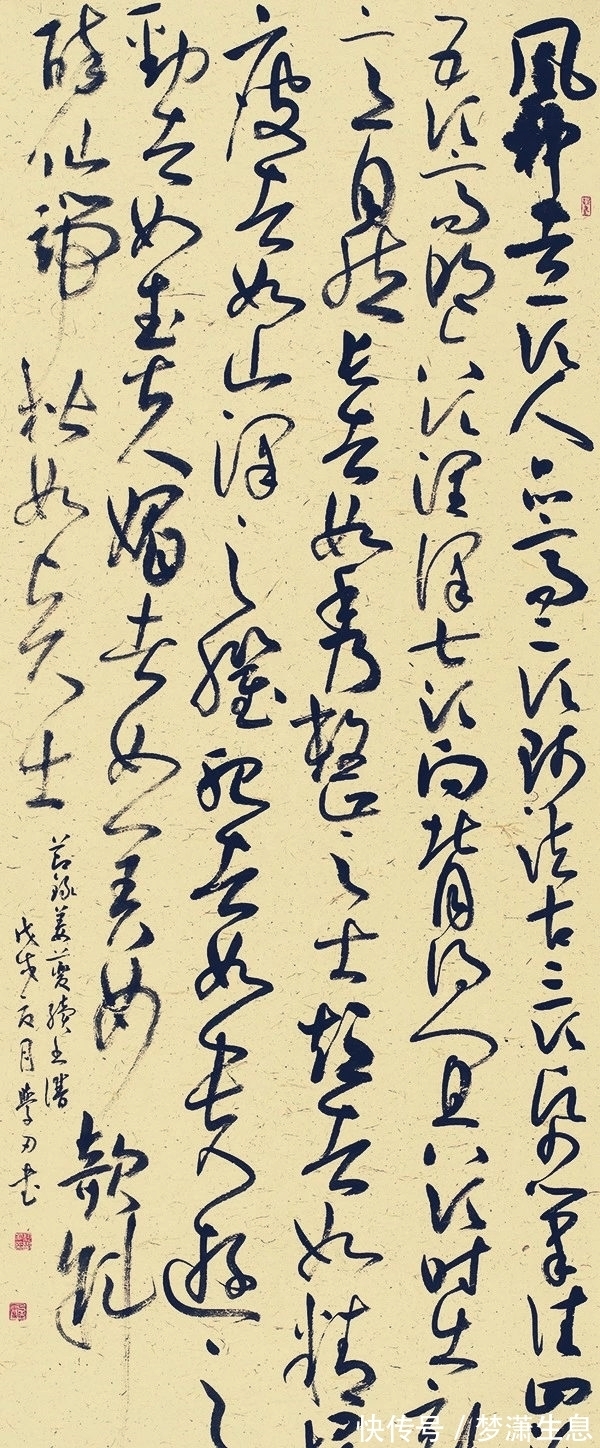 風神者一須人品高二須師法古三須紙筆佳四
五須高明六須潤澤七須向背得宜八須時出新
意自然長者如秀整之士短者如精悍
瘦者如山澤之臞肥者如貴遊之
勁者如武夫媚者如美女欹斜
醉仙端楷如賢士
節錄姜夔續书譜
戊戌夏月學书
快传号 / 梦潇生息